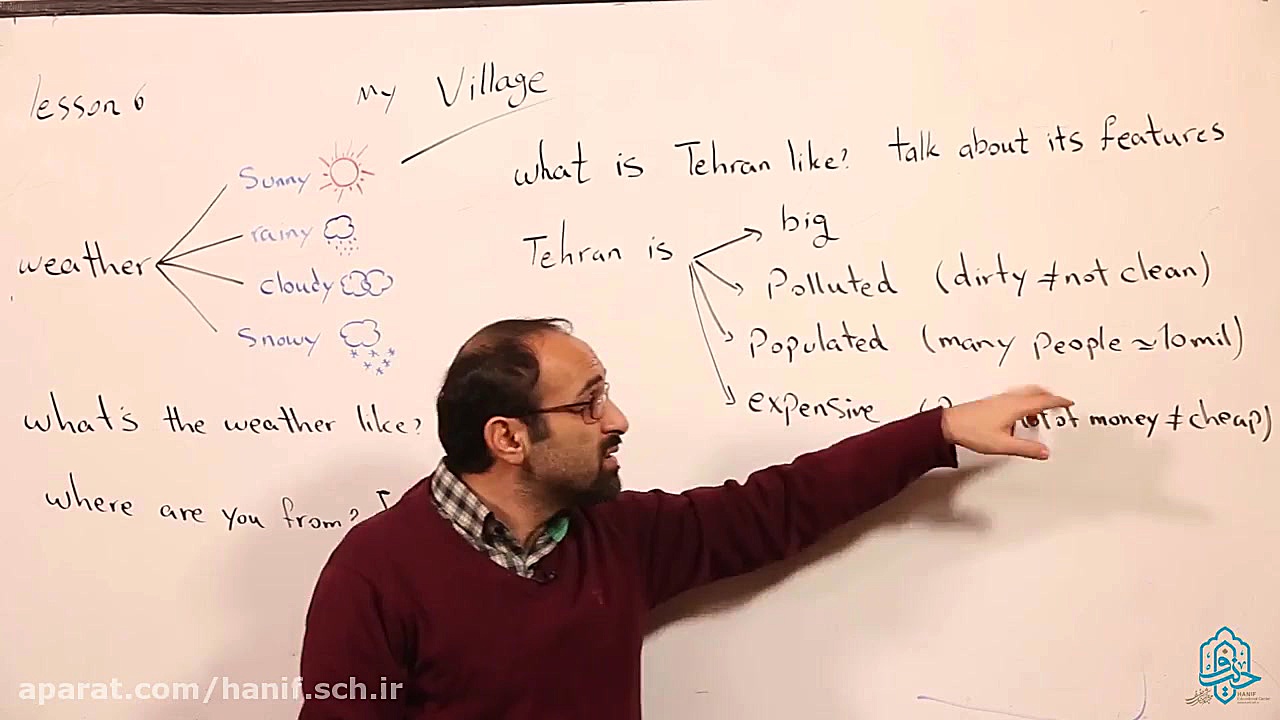 lesson 6
My Village
weather
Sunny
rainy
cloudy
Snowy
what's the weather like?
where are you from?
what is Tehran like? talk about its features
Tehran is
big
Polluted (dirty ≠ not clean)
Populated (many people ≃ 10 mil)
expensive ( of money ≠ cheap)
aparat.com/hanif.sch.ir
HANIF